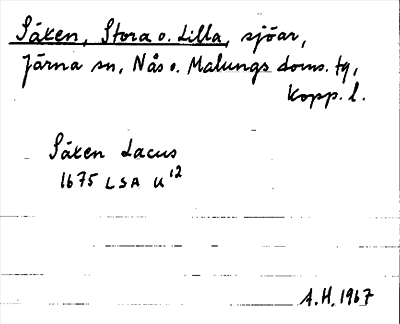 Säxen, Stora o. Lilla, sjöar,
Järna sn, Nås o. Malungs doms. tg,
Kopp. l.
Säxen Lacus
1675 LSA U¹²
A.H. 1967